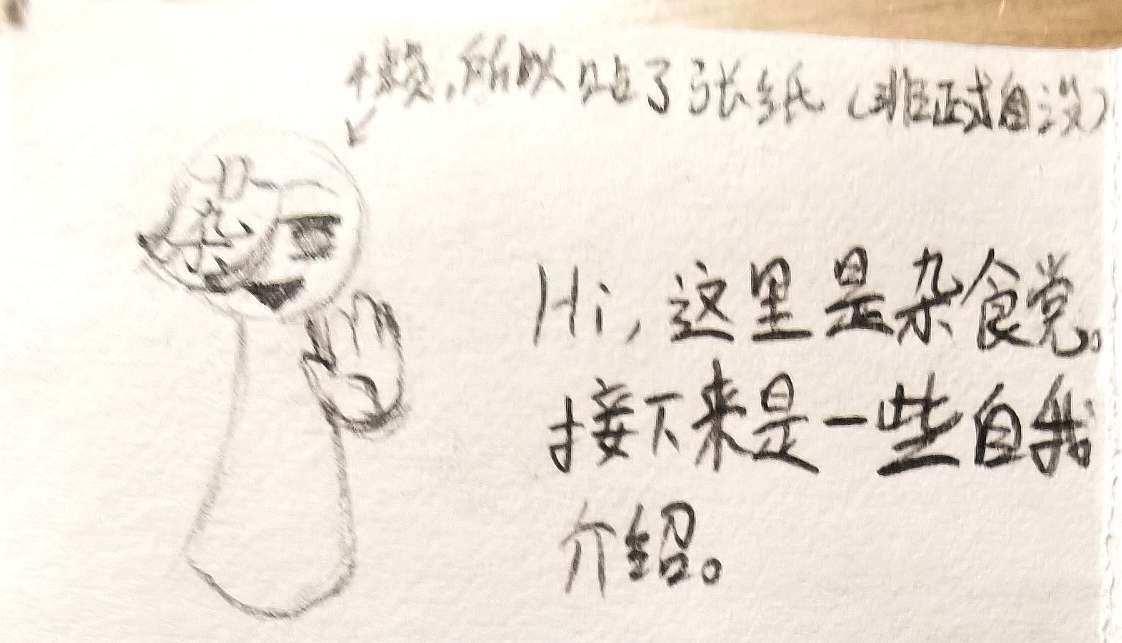 懒,所以贴了张纸(非正式自设)
杂
Hi,这里是杂食党。
接下来是一些自我
介绍。